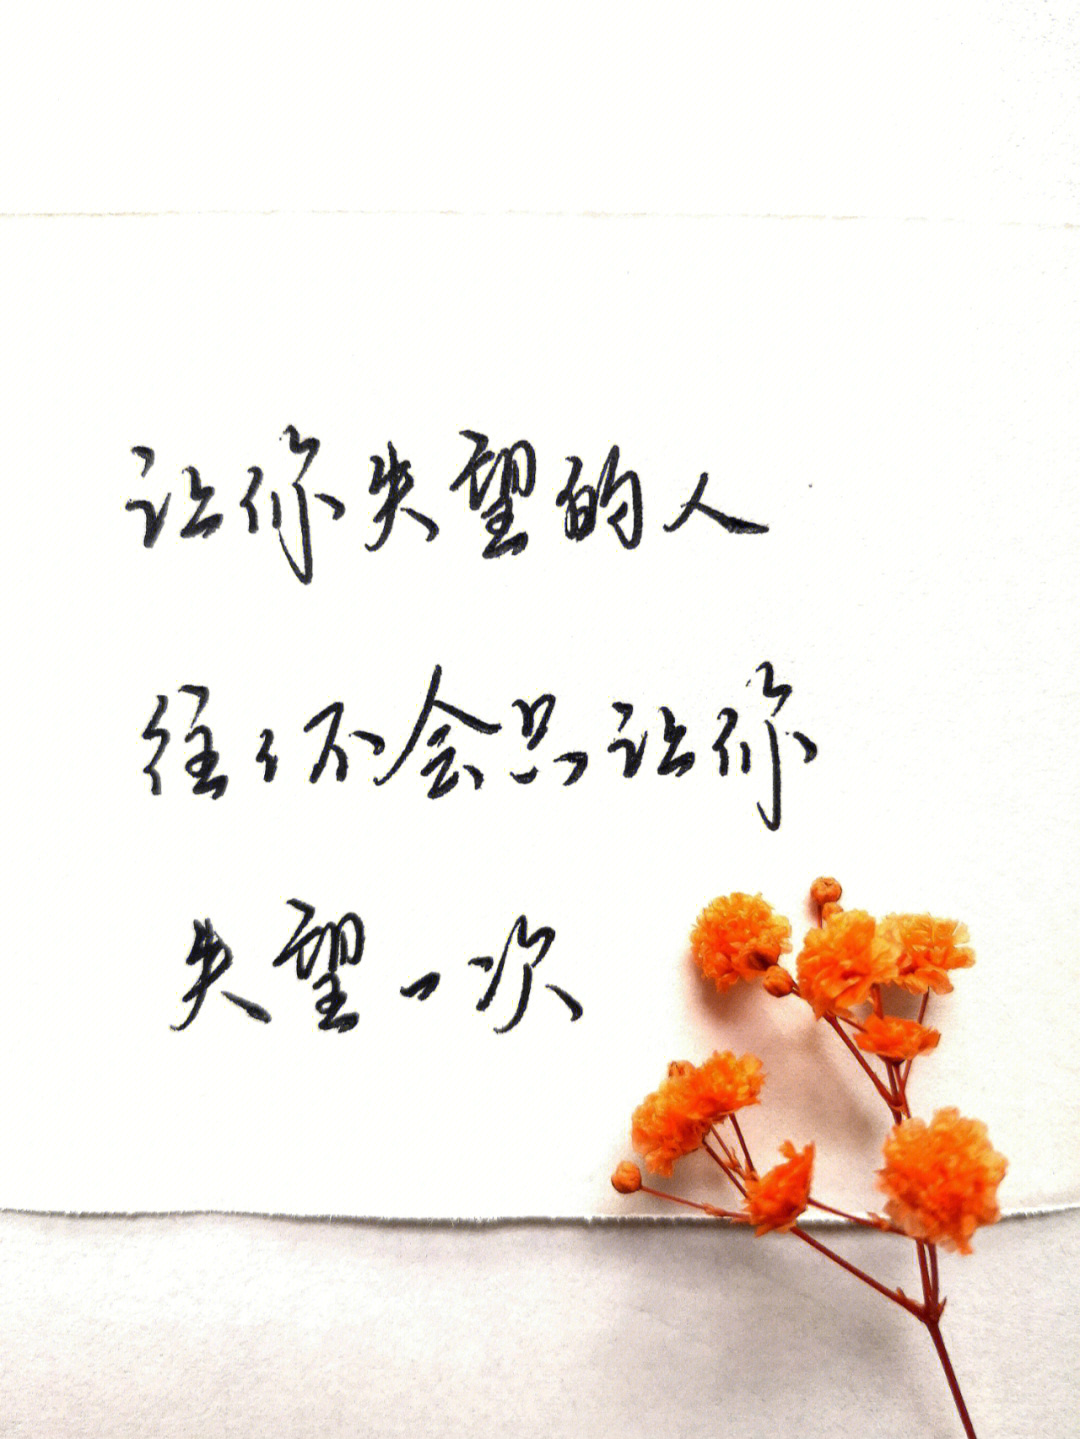 让你失望的人
往々不会只让你
失望一次